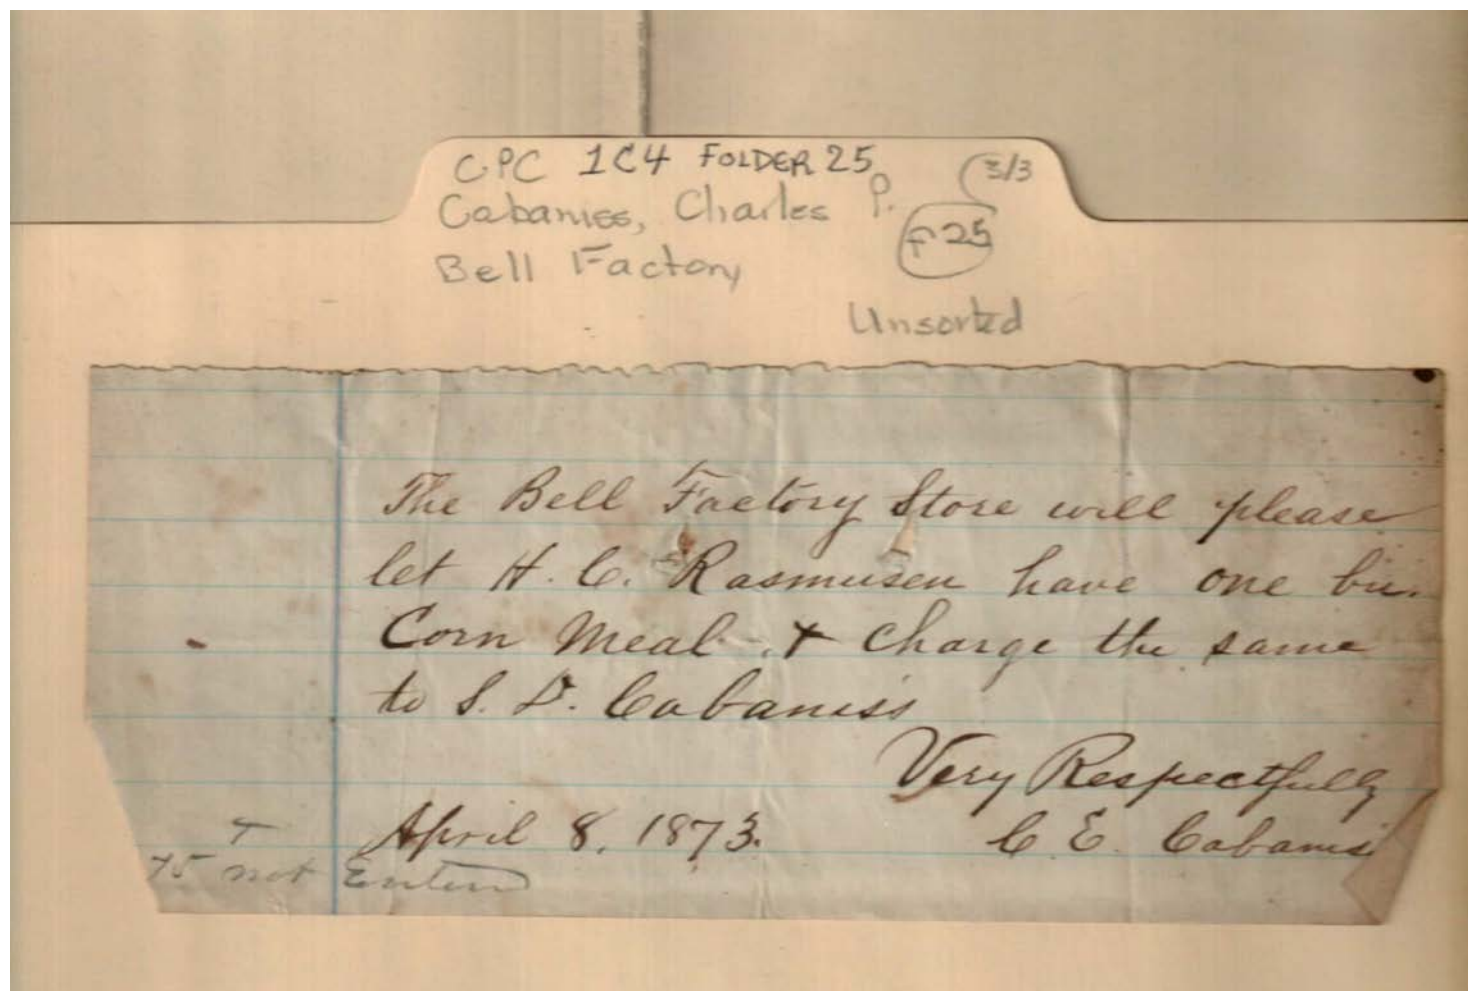 CPC 1C4 FOLDER 25 3/3
Cabaniss, Charles P.
F25
Bell Factory
Unsorted
The Bell Factory Store will please
let H. C. Rasmusen have one bu.
Corn Meal & charge the same
to S. D. Cabaniss
Very Respectfully
April 8, 1873. C. E. Cabaniss
75 not Enterd